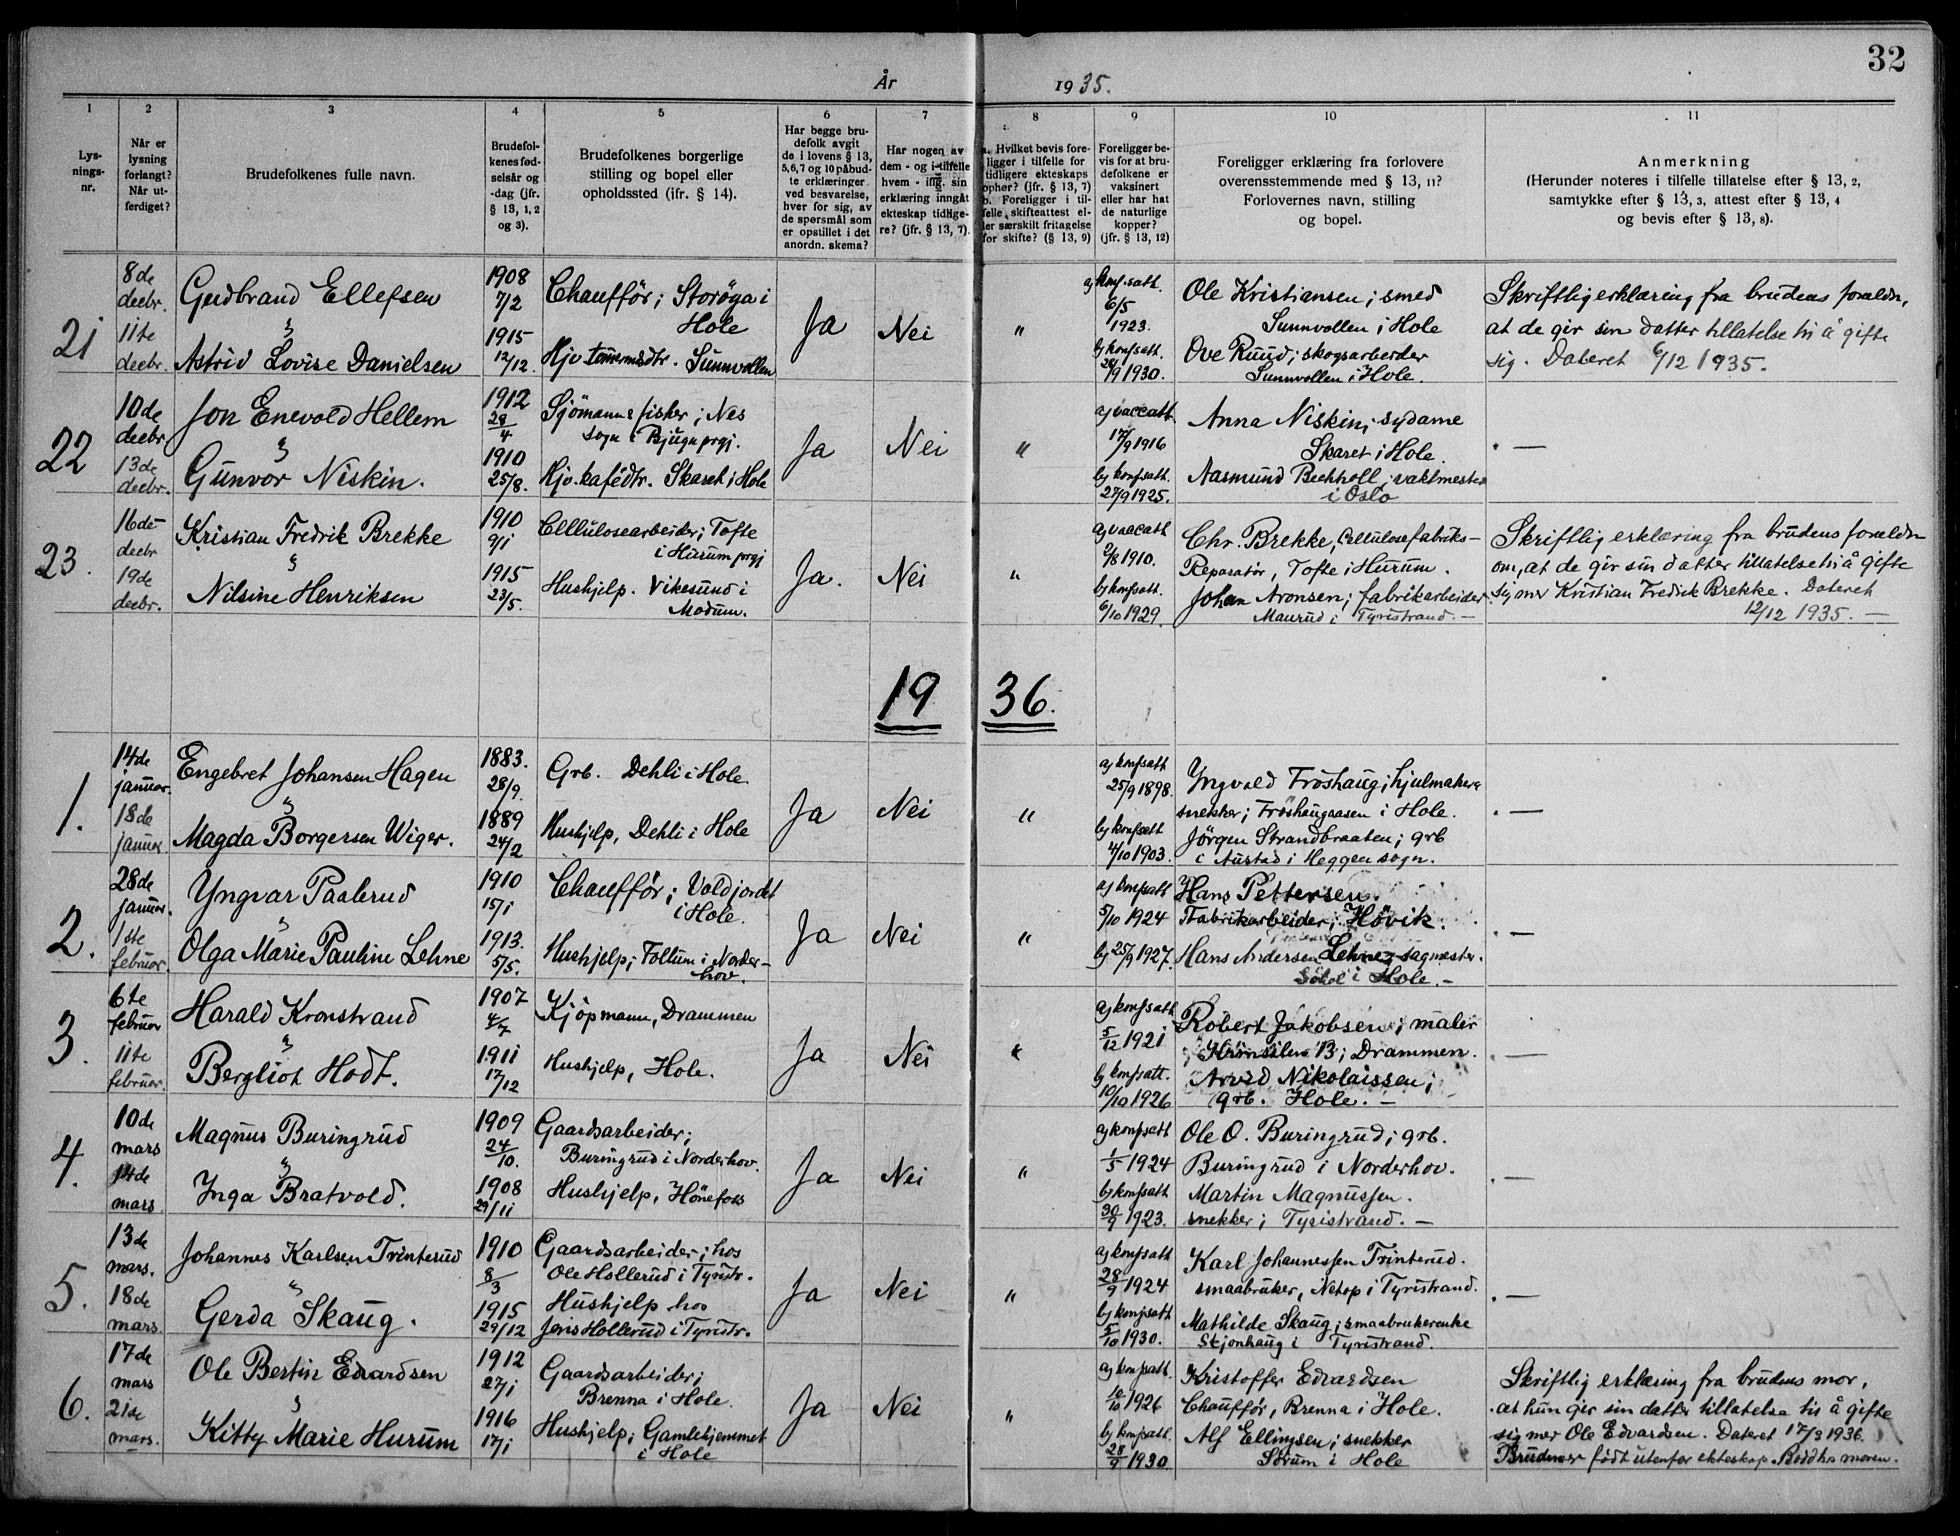 32
År 1935.
1 2 3 4 5 6 7 8 9 10 11
Lys-
nings-
nr.
Når er
lysning
forlangt?
Når ut-
ferdiget?
Brudefolkenes fulle navn.
Brudefol-
kenes fød-
selsår og
-dag (jfr.
§ 13, 1, 2
og 3).
Brudefolkenes borgerlige
stilling og bopel eller
opholdssted (jfr. § 14).
Har begge bru-
defolk avgit
de i lovens § 13,
5,6,7 og 10 påbud-
te erklæringer
ved besvarelse,
hver for sig, av
de spørsmål som
er opstillet i det
anordn. skema?
Har nogen av
dem - og i tilfelle
hvem - iflg. sin
erklæring inngått
ekteskap tidlige-
re? (jfr. § 13, 7).
a. Hvilket bevis fore-
ligger i tilfelle for
tidligere ekteskaps
ophør? (jfr. § 13, 7)
b. Foreligger i til-
felle skifteattest el-
ler særskilt fritagelse
for skifte? (§ 13, 9)
Foreligger be-
vis for at bru-
defolkene er
vaksinert
eller har hat
de naturlige
kopper?
(jfr. § 13, 12)
Foreligger erklæring fra forlovere
overensstemmende med § 13, 11?
Forlovernes navn, stilling
og bopel.
Anmerkning
(Herunder noteres i tilfelle tillatelse efter § 13, 2,
samtykke efter § 13, 3, attest efter § 13, 4
og bevis efter § 13, 8).
21
8de
decbr.
11te
decbr.
Gudbrand Ellefsen
"
Astrid Lovise Danielsen
1908
7/2
1915
12/12.
Chaufför; Storöya i
Hole
Hjv. tömmermdtr. Sunnvollen
Ja
Nei
"
a) konf.satt.
6/5
1923.
b) konfsatt.
28/9 1930.
Ole Kristiansen; smed
Sunnvollen i Hole
Ove Ruud; skogsarbeider
Sunnvollen i Hole.
Skriftlig erklæring fra brudens foreldre,
at de gir sin datter tillatelse til å gifte
sig. Dateret 6/12 1935.
22
10de
decbr.
13de
decbr.
Jon Enevold Hellem
"
Gunvor Niskin.
1912
28/4
1910
25/8.
Sjömann & fisker; Nes
sogn i Bjugn prgj.
Hjv. kafédtr. Skaret i Hole
Ja
Nei
"
a) vaccatt.
17/9 1916
b) konfsatt.
27/9 1925.
Anna Niskin; sydame
Skaret i Hole.
Aasmund Bechholl; vaktmester
i Oslo
. —
23.
16de
decbr
19de
decbr.
Kristian Fredrik Brekke
"
Nilsine Henriksen
1910
9/1
1915
23/5.
Cellulosearbeider; Tofte
i Hurum prgj
Hushjelp. Vikesund i
Modum.
Ja.
Nei
"
a) vaccatt
6/8 1910.
b) konfsatt.
6/10 1929.
Chr. Brekke, Cellulosefabriks-
Reparatør, Tofte i Hurum.
Johan Aronsen; fabrikarbeider
Maurud i Tyristrand. —
Skriftlig erklæring fra brudens foreldre
om, at de gir sin datter tillatelse til å gifte
sig mer Kristian Fredrik Brekke. Dateret
12/12 1935. —
1936.
1.
14de
januar.
18de
januar
Engebret Johansen Hagen
"
Magda Borgersen Wiger.
1883.
28/9.
1889
24/2
Grb. Dehli i Hole.
Hushjelp, Dehli i Hole
Ja
Nei
"
a) konfsatt
25/9 1898.
b) konfsatt
4/10 1903.
Yngvald Fröshaug; hjulmaker &
snekker; Fröshaugaasen i Hole.
Jörgen Strandbraaten; grb
i Austad i Heggen sogn.
. —
2.
28de
januar.
1ste
februar.
Yngvar Paalerud
"
Olga Marie Pauline Lehne
1910
15/1
1913.
5/5.
Chaufför; Voldjordet
i Hole.
Hushjelp; Follum i Norder-
hov.
Ja
Nei
"
a) konfsatt
5/10 1924
b) 25/9 1927.
Hans Pettersen.
Fabrikarbeider; Hövik.
Hans Andersen Lehne sagmester.
i Hole. -
. —
3.
6te
februar
11te
februar.
Harald Kronstrand
"
Bergliot Hodt.
1907
4/7
1911
17/12
Kjöpmann, Drammen
Hushjelp, Hole.
Ja
Nei
"
a) konfsatt
5/12 1921
b) konfsatt.
10/10 1926
Robert Jakobsen; maler
13; Drammen.
Arvid Nikolaissen;
grb. Hole. —
. —
4.
10de
mars
14de
mars.
Magnus Buringrud
"
Inga Bratvold.
1909
24/10.
1908
29/11
Gaardsarbeider;
Buringrud i Norderhov.
Hushjelp, Hönefoss
Ja
Nei
"
a) konfsatt
1/5 1924
b) konfsatt
30/9 1923.
Ole O. Buringrud; grb.
Buringrud i Norderhov.
Martin Magnussen.
snekker; Tyristrand. —
. —
5.
13de
mars.
18de
mars.
Johannes Karlsen Trinterud
"
Gerda Skaug.
1910
8/3
1915
29/12
Gaardsarbeider; hos
Ole Hollerud i Tyristr.
Hushjelp hos
Jens Hollerud i Tyristr.
Ja
Nei
"
a) konfsatt
28/9 1924
b) konfsatt
5/10 1930.
Karl Johannessen Trinterud.
smaabruker, Netop i Tyristrand.
Mathilde Skaug; smaabrukerenke
Stjonhaug i Tyristrand.
. —
6.
17de
mars
21de
mars.
Ole Bertin Edvardsen
"
Kitty Marie Hurum
1912
27/1
1916
17/1
Gaardsarbeider;
Brenna i Hole.
Hushjelp; Gamlehjemmet
i Hole
Ja
Nei
"
a) konfsatt.
10/10 1926
b) konfsatt.
28/9 1930.
Kristoffer Edvardsen
Chaufför, Brenna i Hole.
Alf Ellingsen; snekker
Sörum i Hole
Skriftlig erklæring fra brudens mor,
at hun gir sin datter tillatelse til å gifte
sig mer Ole Edvardsen. Dateret 17/3 1936.
Bruden er født utenfor ekteskap. Bodd hos moren.